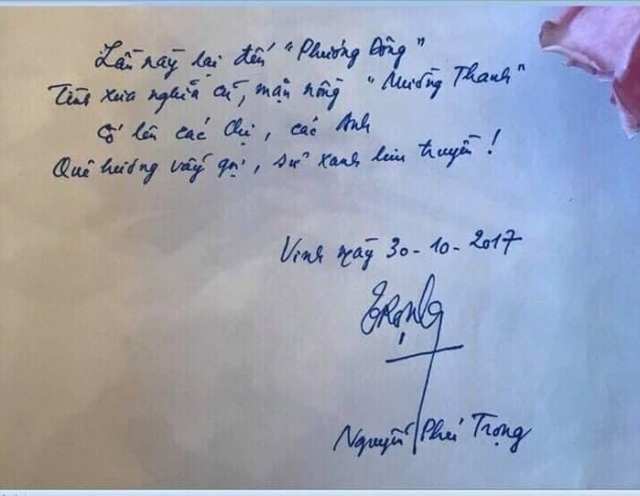 Lần này lại đến "Phương Đông"
Tình xưa nghĩa cũ, mặn nồng "Mường Thanh"
Cố lên các chị, các Anh
Quê hương vẫy gọi, sử xanh lưu truyền!
Vinh ngày 30-10-2017
TRỌNG
Nguyễn Phú Trọng